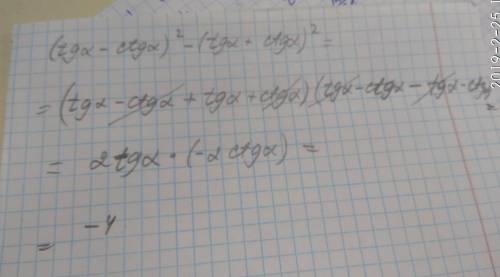 (tgα - ctgα)² - (tgα + ctgα)² =
= (tgα - ctgα + tgα + ctgα)(tgα - ctgα - tgα - ctgα)
= 2tgα · (-2ctgα) =
= -4
2019-2-25 1